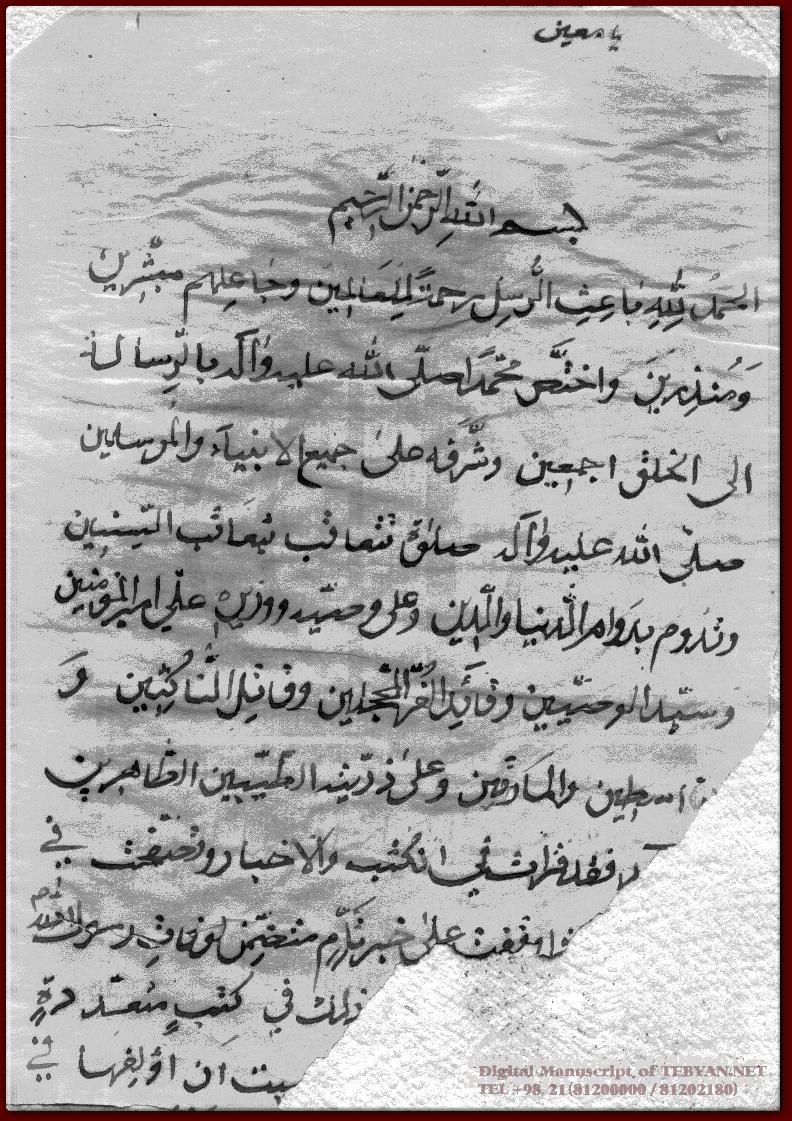 يا معين
بسم الله الرحمن الرحيم
الحمدُ لِلّٰهِ باعِثِ الرُّسِلِ رحمتًا لِلعَالمين وجاعِلِهم مبشّرين
وَمُنذِرينَ واختصَّ محمّدًا صلّى الله عليه وآله بالرِّسالة
الى الخلق اجمعين وشرَّفه على جميع الانبياء والمرسلين
صلّى الله عليه وآله صلوة تتعاقب بتعاقب السّنين
وتدوم بدوام الدّنيا والدّين وعلى وصيّه ووزيرهِ علّي امير المؤمنين
وسيّد الوصيّين وقائد الغُرّ المحجلين وقاتِلِ النّاكثين وَ
القاسطين والمارقين وعلى ذرّيته الطيّبين الطّاهرين
فقد قرات في الكتب والاخبار وتصفحت في
على خبر تامّ متضمّن لوفاتِ رسول الله
ذلك في كتبٍ متعدّدةٍ
ان اؤلِفها في
Digital Manuscript of TEBYAN.NET
TEL +98 21(81200000 / 81202180)